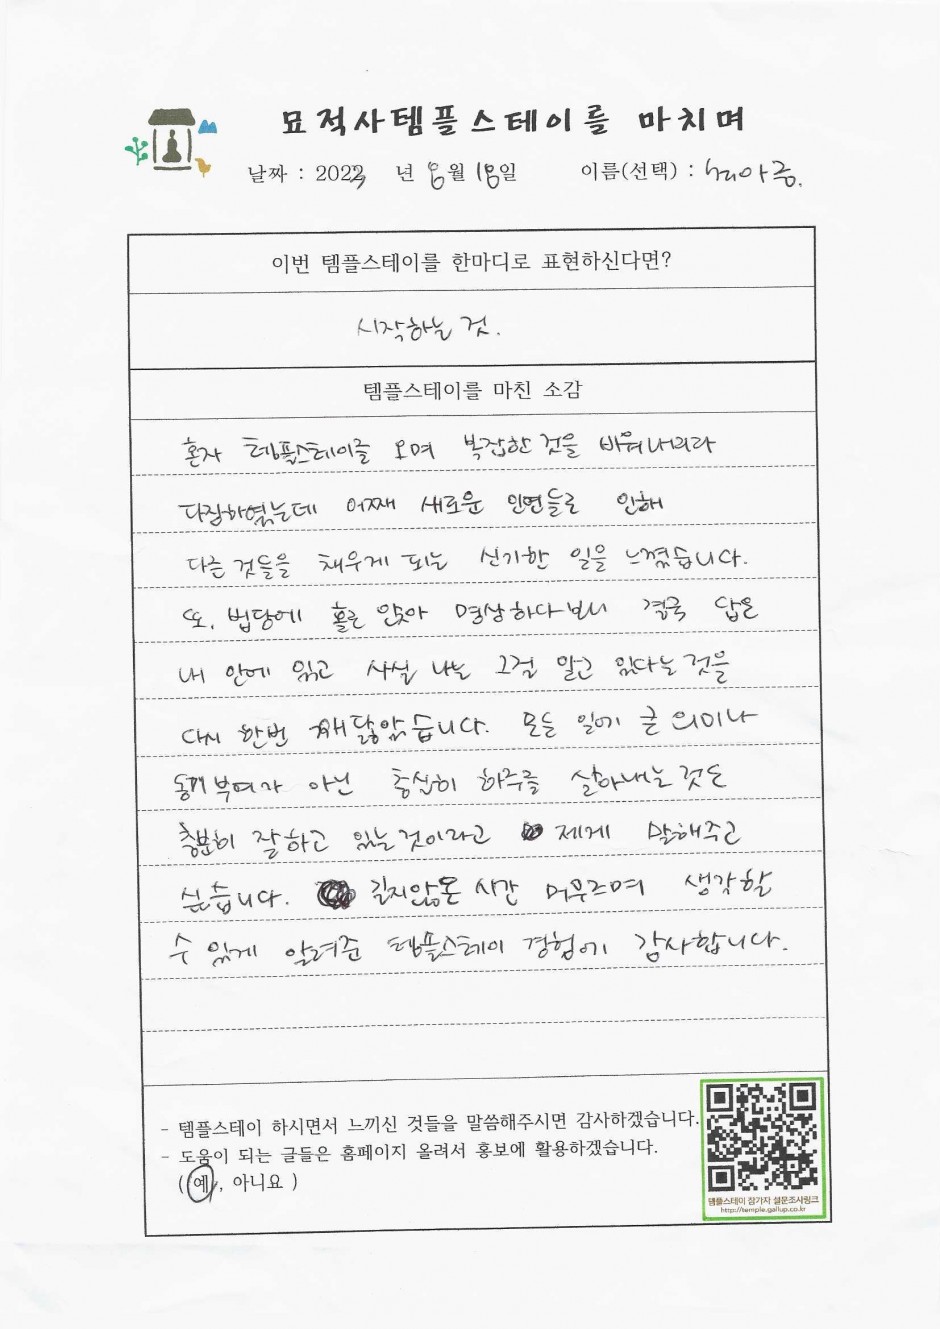 묘적사템플스테이를 마치며
날짜 : 2023 년 8월 18일 이름(선택) :
이번 템플스테이를 한마디로 표현하신다면?
시작하는 것.
템플스테이를 마친 소감
혼자 템플스테이를 오며 복잡한 것을 비워내리라
다짐하였는데 어째 새로운 인연들로 인해
다른 것들을 채우게 되는 신기한 일을 느꼈습니다.
또, 법당에 홀로 앉아 명상하다보니 결국 답은
내 안에 있고 사실 나는 그걸 알고 있다는 것을
다시 한번 깨닳았습니다. 모든 일에 큰 의미나
동기부여가 아닌 충실히 하루를 살아내는 것도
충분히 잘하고 있는것이라고 제게 말해주고
싶습니다. 길지않은 시간 머무르며 생각할
수 있게 알려준 템플스테이 경험에 감사합니다.
- 템플스테이 하시면서 느끼신 것들을 말씀해주시면 감사하겠습니다.
- 도움이 되는 글들은 홈페이지 올려서 홍보에 활용하겠습니다.
( 예 , 아니요 )
템플스테이 참가자 설문조사링크
http://temple.gallup.co.kr